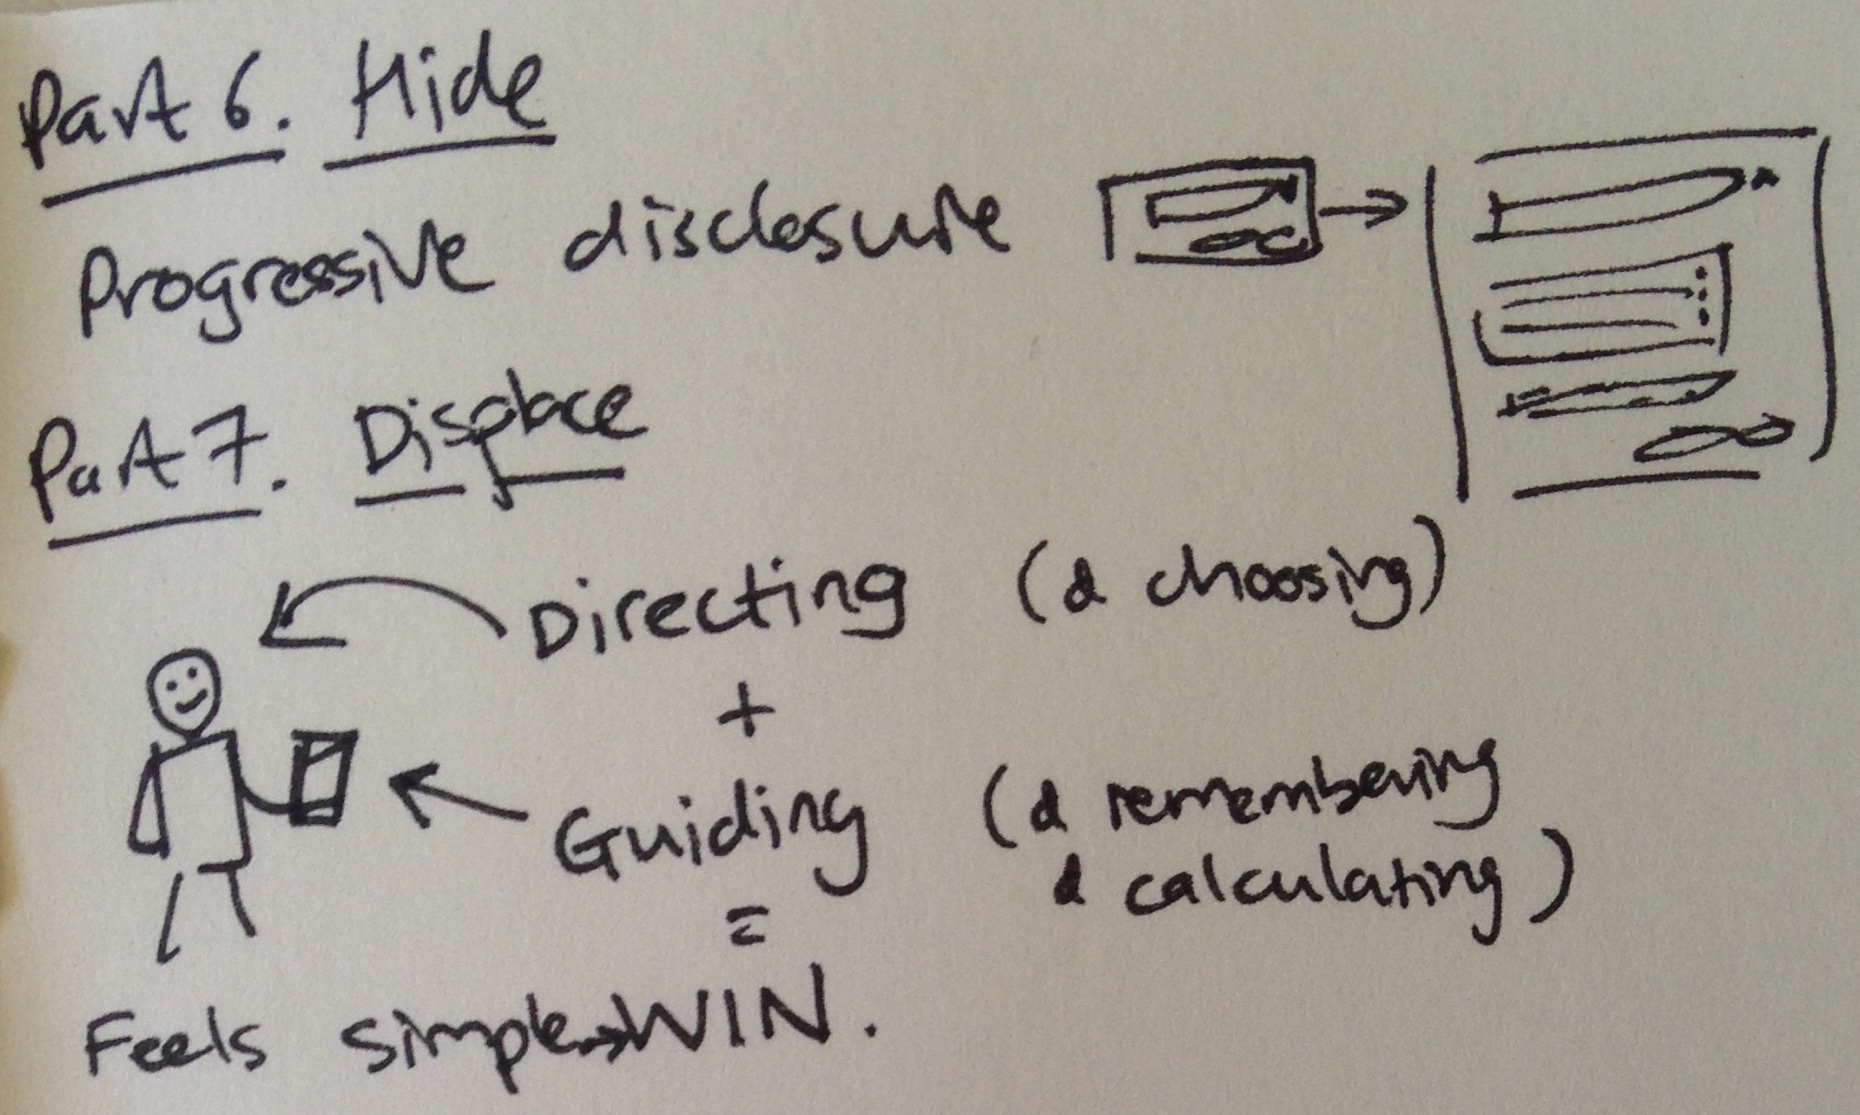 Part 6. Hide
Progressive disclosure →
Part 7. Displace
Directing (& choosing)
+
Guiding (& remembering
& calculating)
=
Feels simple → WIN.